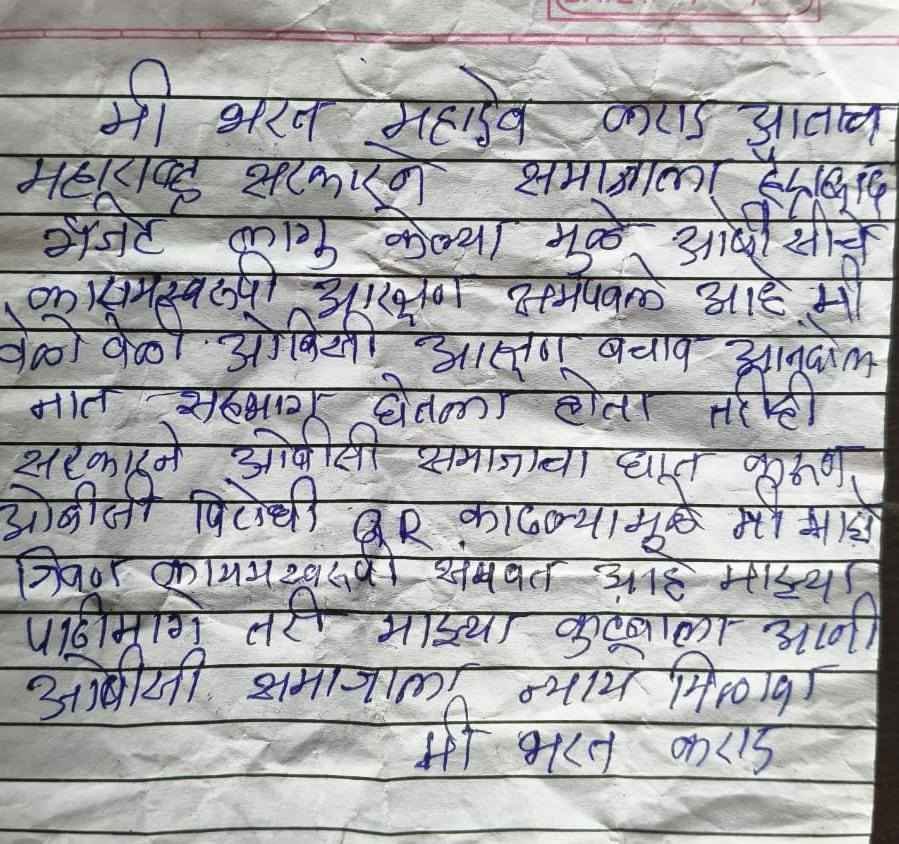 मी भरत महादेव कराड आताच
महाराष्ट्र सरकारने समाजाला हैद्राबाद
गॅजेट लागु केल्या मुळे ओबीसीचे
कायमस्वरूपी आरक्षण संमपवले आहे मी
वेळो वेळी ओबिसी आरक्षण बचाव आनदोल
नात सहभाग घेतला होता तरीही
सरकारने ओबीसी समाजाचा घात करून
ओबीसी विरोधी GR काढल्यामूळे मी माझे
जिवन कायमस्वरूपी संमवत आहे माझ्या
पाठीमागे तरी माझ्या कुटूबाला आनी
ओबीसी समाजाला न्याय मिळावा
मी भरत कराड